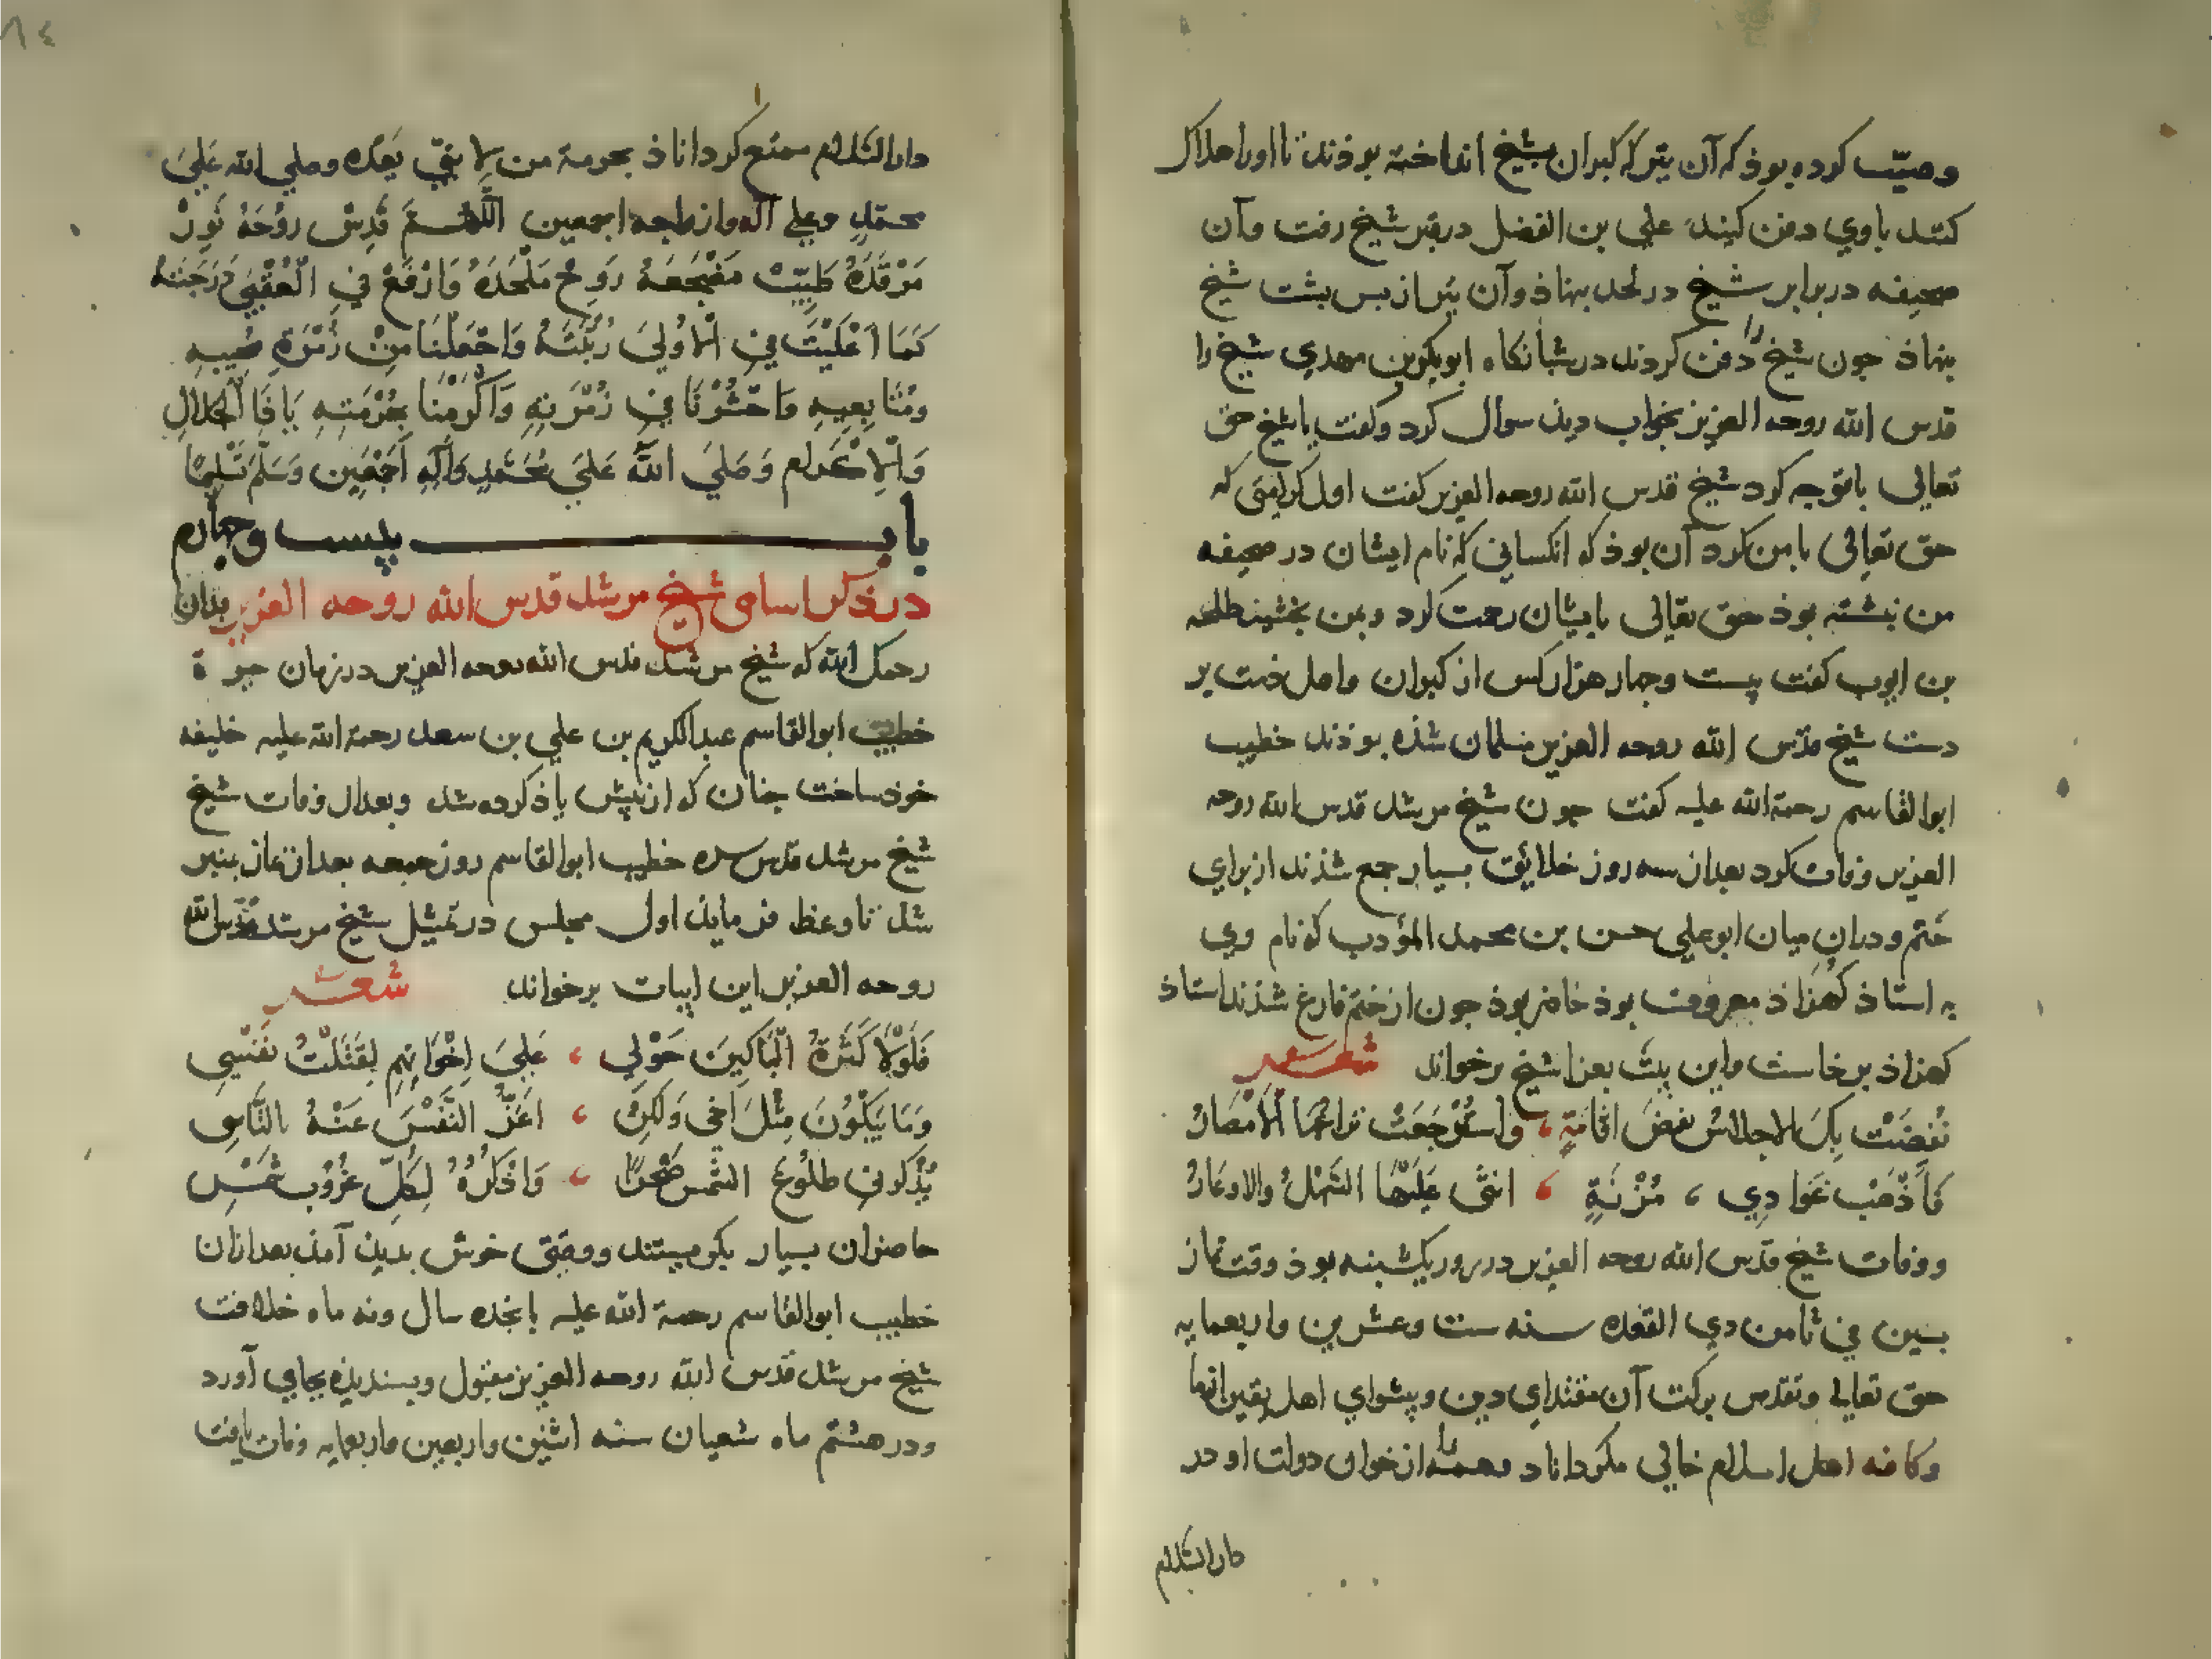 وصیّت کرده بوذ که آن تیر که کبران بشیخ انداخته بوذند تا اورا هلاک
کنند باوي دفن کنند علي بن الفضل در قبر شیخ رفت و آن
صحیفه در برابر شیخ در لحد بنهاذ و آن تیر از بس بشت شیخ
بنهاذ جون شیخ را دفن کردند در شبانکاه ابوبکر بن مهدي شیخ را
قدس الله روحه العزیز بخواب دید سوال کرد و کفت یا شیخ حق
تعالی باتو جه کرد شیخ قدس الله روحه العزیز کفت اول کرامتی که
حق تعالی بامن کرد آن بوذ که انکسانی که نام ایشان در صحیفه
من نبشته بوذ حق تعالی بایشان رحمت کرد و بمن بخشید طلحه
بن ایوب کفت بیست وجهار هزار کس از کبران و اهل ذمت بر
دست شیخ قدس الله روحه العزیز مسلمان شذه بوذند خطیب
ابوالقاسم رحمة الله علیه کفت جون شیخ مرشد قدس الله روحه
العزیز وفات کرد بعد از سه روز خلایق بسیار جمع شذند از براي
ختم و دران میان ابوعلي حسن بن محمد المؤدب که نام وي
به استاذ کهزاذ معروفست بوذ حاضر بوذ جون از ختم فارغ شذند استاذ
کهزاذ برخاست و این بیت بعزا شیخ برخواند شعر
نُفِضَتْ بِكَ الاحلاسُ نفضَ اقامَةٍ ، واسْتُرْجَعَتْ نزاعَها الأمْصَارُ
فَاَذْهَبْ غَوادِي ، مُزْنَةٍ ، اثنى عَلَيْها السَّهْلُ والاوعَارُ
و وفات شیخ قدس الله روحه العزیز در روز یکشنبه بوذ وقت نماز
بسین في ثامن ذي القعده سنه ست وعشرین واربعمایه
حق تعالی وتقدس برکت آن مقتداي دین و پیشواي اهل یقین ازما
و کافه اهل اسلام خالی مکرداناد و همه را از خوان دولت او در
دار السّلام
٨٤
دار السّلام ممتع کرداناذ بحرمة من لا نبيّ بعده وصلي الله عَليَ
محمّدٍ وعلي آله وازواجه اجمعین اللّهُمَّ قَدِسْ روُحَهُ نَوِرْ
مَرْقَدَهُ طَيِّبْ مَضْجَعَهُ رَوِحْ مَلْحَدَهُ وَارْفَعْ فيِ الْعُقْبيَ دَرَجَتهُ
كَمَا اَعْلَيْتَ فيِ الْاُوليَ رُتْبَتَهُ وَاجْعَلْنَا مِنْ زُمْرَةِ مُحِبيهِ
ومُتَابِعيهِ وَاحْشُرْنَا فيِ زُمْرَتِهِ وَاَكْرِمْنَا بِحُرْمَتِهِ يَاذَا الْجَلالِ
وَالْاِكْرامِ وَصَليَ اللهَّ عَليَ مُحَمَّدٍ وَآلِهِ اَجْمَعِينَ وَسَلَّمَ تَسْلِيماً
باب بیست وجهارم
در ذکر اسامی شیخ مرشد قدس الله روحه العزیز بدان
رحمک الله که شیخ مرشد قدس الله روحه العزیز در زمان حیوة
خطیب ابوالقاسم عبدالکریم بن علي بن سعد رحمة الله علیه خلیفه
خوذ ساخت جنان که ازپیش یاذ کرده شد و بعد از وفات شیخ
شیخ مرشد قدس سره خطیب ابوالقاسم روز جمعه بعد از نماز بمنبر
شد تا وعظ فرماید اول مجلس در تمثیل شیخ مرشد قدّس الله
روحه العزیز این ابیات برخواند شعر
فَلَوْلَا كَثرَةُ الْبَاكِينَ حَوْلِي ، عَليَ اِخْوَانِهِمِ لَقَتَلْتُ نَفْسِي
وَمَا يَبْكُونَ مِثْلَ اَخي وَلَكِنْ ، اُعَزّي النَّفْسَ عَنْهُ بالتَّاَسِي
يُذَكِّرُني طلُوُعُ الشَّمْسِ صَخْراً ، وَاذْكُرُهُ لِكُلِّ غُرُوُبِ شَمْسِ
حاضران بسیار بکریستند و وقتی خوش بدید آمذ بعد ازان
خطیب ابوالقاسم رحمة الله علیه بانجده سال و نه ماه خلافت
شیخ مرشد قدس الله روحه العزیز مقبول و بسندیذه بجاي آورد
و در هشتم ماه شعبان سنه اثنین واربعین واربعمایه وفات یافت